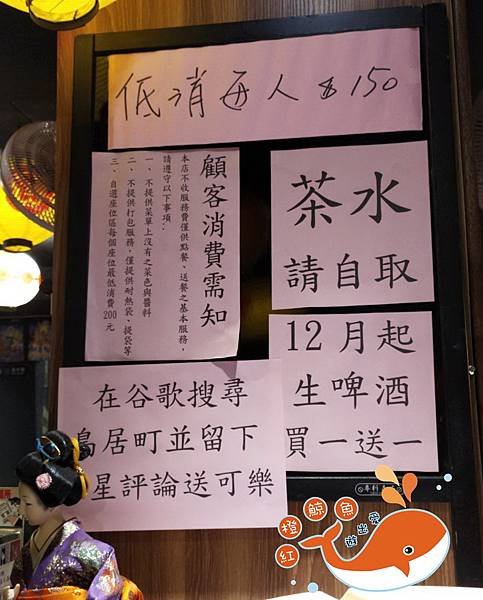 低消每人$150
顧客消費需知
本店不收服務費僅供點餐、送餐之基本服務，
請遵守以下事項：
一、不提供菜單上沒有之菜色與醬料
二、不提供打包服務，僅提供耐熱袋、提袋等
三、自選座位區每個座位最低消費200元
茶水
請自取
12月起
生啤酒
買一送一
在谷歌搜尋
鳥居町並留下
星評論送可樂
橙鯨魚
紅
遊出愛